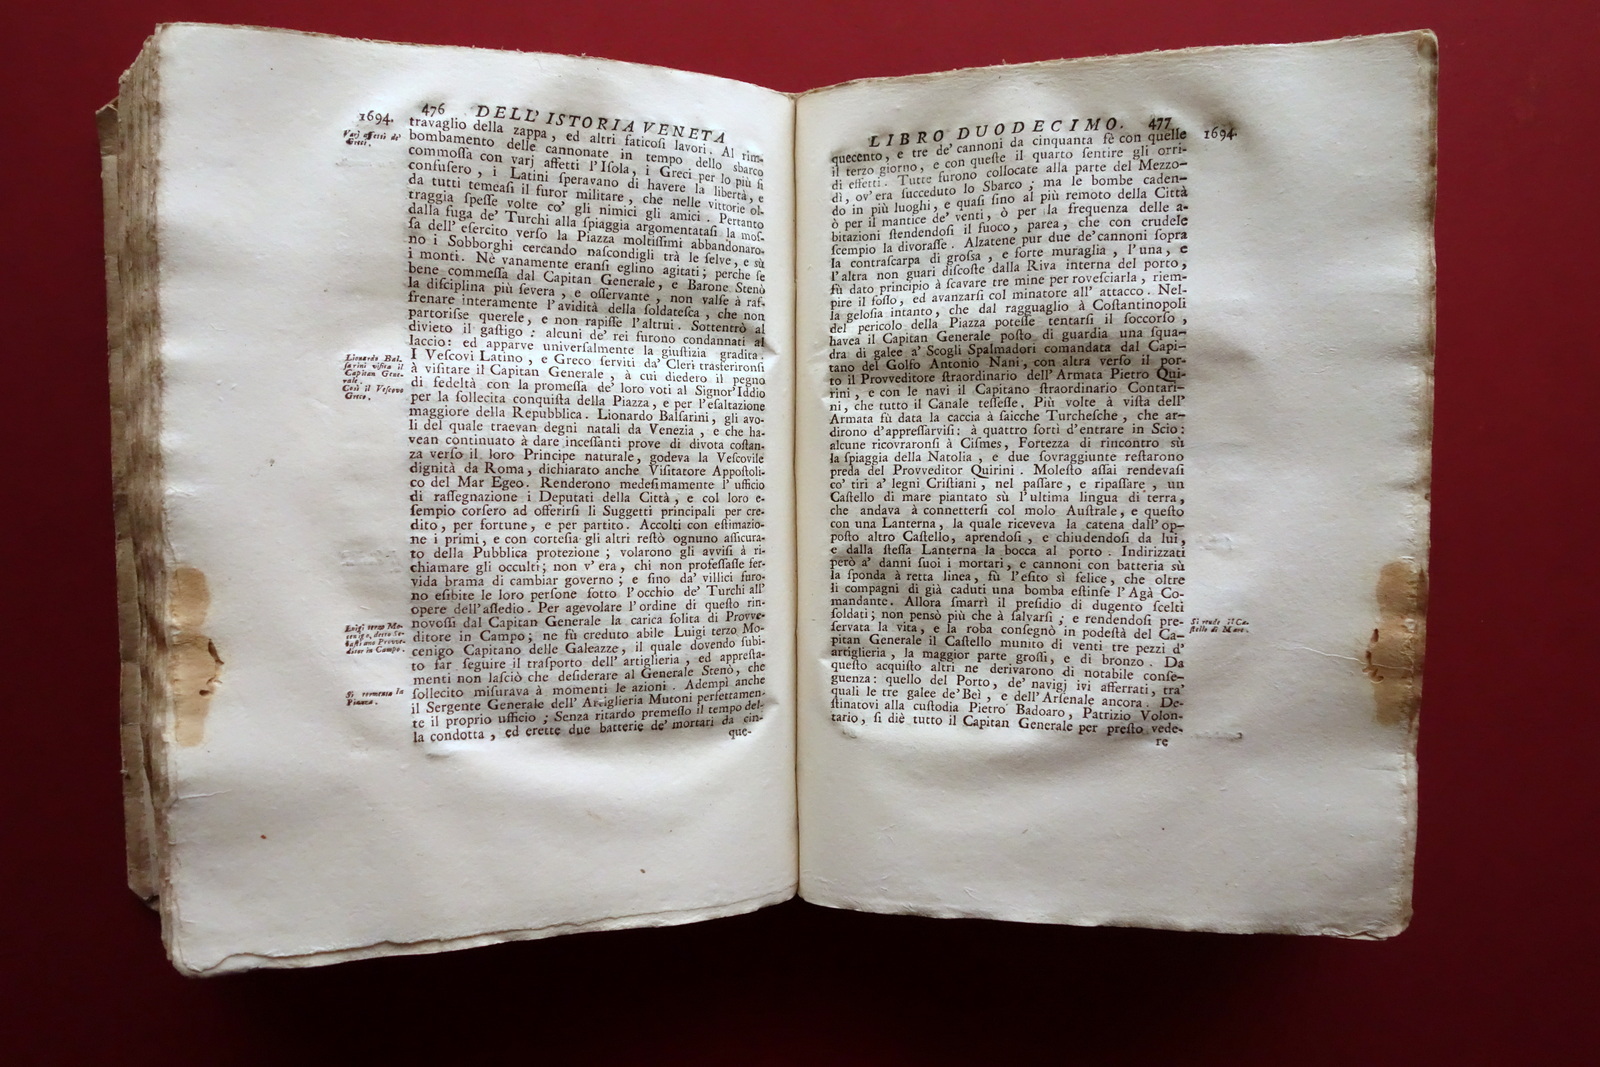 1694. 476 DELL'ISTORIA VENETA
Varj affetti de'
Greci.
travaglio della zappa, ed altri faticosi lavori. Al rim-
bombamento delle cannonate in tempo dello sbarco
commossa con varj affetti l'Isola, i Greci per lo più si
confusero, i Latini speravano di havere la libertà, e
da tutti temeasi il furor militare, che nelle vittorie ol-
traggia spesse volte co' gli nimici gli amici. Pertanto
dalla fuga de' Turchi alla spiaggia argomentatasi la mos-
sa dell'esercito verso la Piazza moltissimi abbandonaro-
no i Sobborghi cercando nascondigli trà le selve, e sù
i monti. Nè vanamente eransi eglino agitati; perche se
bene commessa dal Capitan Generale, e Barone Stenò
la disciplina più severa, e osservante, non valse à raf-
frenare interamente l'avidità della soldatesca, che non
partorisse querele, e non rapisse l'altrui. Sottentrò al
divieto il gastigo: alcuni de' rei furono condannati al
laccio: ed apparve universalmente la giustizia gradita.
Lionardo Bal-
sarini visita il
Capitan Gene-
rale.
Così il Vescovo
Greco.
I Vescovi Latino, e Greco serviti da' Cleri trasferironsi
à visitare il Capitan Generale, à cui diedero il pegno
di fedeltà con la promessa de' loro voti al Signor'Iddio
per la sollecita conquista della Piazza, e per l'esaltazione
maggiore della Repubblica. Lionardo Balsarini, gli avo-
li del quale traevan degni natali da Venezia, e che ha-
vean continuato à dare incessanti prove di divota costan-
za verso il loro Principe naturale, godeva la Vescovile
dignità da Roma, dichiarato anche Visitatore Appostoli-
co del Mar Egeo. Renderono medesimamente l'ufficio
di rassegnazione i Deputati della Città, e col loro e-
sempio corsero ad offerirsi li Suggetti principali per cre-
dito, per fortune, e per partito. Accolti con estimazio-
ne i primi, e con cortesia gli altri restò ognuno assicura-
to della Pubblica protezione; volarono gli avvisi à ri-
chiamare gli occulti; non v'era, chi non professasse fer-
vida brama di cambiar governo; e sino da' villici furo-
no esibite le loro persone sotto l'occhio de' Turchi all'
opere dell'assedio. Per agevolare l'ordine di questo rin-
Luigi terzo Mo-
cenigo, detto Se-
bastiano Provve-
ditor in Campo.
novossi dal Capitan Generale la carica solita di Provve-
ditore in Campo; ne fù creduto abile Luigi terzo Mo-
cenigo Capitano delle Galeazze, il quale dovendo subi-
to far seguire il trasporto dell'artiglieria, ed appresta-
menti non lasciò che desiderare al Generale Stenò, che
Si tormenta la
Piazza.
sollecito misurava à momenti le azioni. Adempì anche
il Sergente Generale dell'Artiglieria Mutoni perfettamen-
te il proprio ufficio; Senza ritardo premesso il tempo del-
la condotta, ed erette due batterie de' mortari da cin-
que-
LIBRO DUODECIMO. 477 1694.
quecento, e tre de' cannoni da cinquanta fè con quelle
il terzo giorno, e con queste il quarto sentire gli orri-
di effetti. Tutte furono collocate alla parte del Mezzo-
dì, ov'era succeduto lo Sbarco; ma le bombe caden-
do in più luoghi, e quasi sino al più remoto della Città
ò per il mantice de' venti, ò per la frequenza delle a-
bitazioni stendendosi il fuoco, parea, che con crudele
scempio la divorasse. Alzatene pur due de'cannoni sopra
la contrascarpa di grossa, e forte muraglia, l'una, e
l'altra non guari discoste dalla Riva interna del porto,
fù dato principio à scavare tre mine per rovesciarla, riem-
pire il fosso, ed avanzarsi col minatore all'attacco. Nel-
la gelosia intanto, che dal ragguaglio à Costantinopoli
del pericolo della Piazza potesse tentarsi il soccorso,
havea il Capitan Generale posto di guardia una squa-
dra di galee a' Scogli Spalmadori comandata dal Capi-
tano del Golfo Antonio Nani, con altra verso il por-
to il Provveditore straordinario dell'Armata Pietro Qui-
rini, e con le navi il Capitano straordinario Contari-
ni, che tutto il Canale tesesse. Più volte à vista dell'
Armata fù data la caccia à saicche Turchesche, che ar-
dirono d'appressarvisi: à quattro sortì d'entrare in Scio:
alcune ricovraronsi à Cismes, Fortezza di rincontro sù
la spiaggia della Natolia, e due sovraggiunte restarono
preda del Provveditor Quirini. Molesto assai rendevasi
co' tiri a' legni Cristiani, nel passare, e ripassare, un
Castello di mare piantato sù l'ultima lingua di terra,
che andava à connettersi col molo Australe, e questo
con una Lanterna, la quale riceveva la catena dall'op-
posto altro Castello, aprendosi, e chiudendosi da lui,
e dalla stessa Lanterna la bocca al porto. Indirizzati
però a' danni suoi i mortari, e cannoni con batteria sù
la sponda à retta linea, fù l'esito sì felice, che oltre
li compagni di già caduti una bomba estinse l'Agà Co-
mandante. Allora smarrì il presidio di dugento scelti
soldati; non pensò più che à salvarsi; e rendendosi pre-
Si rende il Ca-
stello di Mare.
servata la vita, e la roba consegnò in podestà del Ca-
pitan Generale il Castello munito di venti tre pezzi d'
artiglieria, la maggior parte grossi, e di bronzo. Da
questo acquisto altri ne derivarono di notabile conse-
guenza: quello del Porto, de' navigj ivi afferrati, tra'
quali le tre galee de'Beì, e dell'Arsenale ancora. De-
stinatovi alla custodia Pietro Badoaro, Patrizio Volon-
tario, si diè tutto il Capitan Generale per presto vede-
re